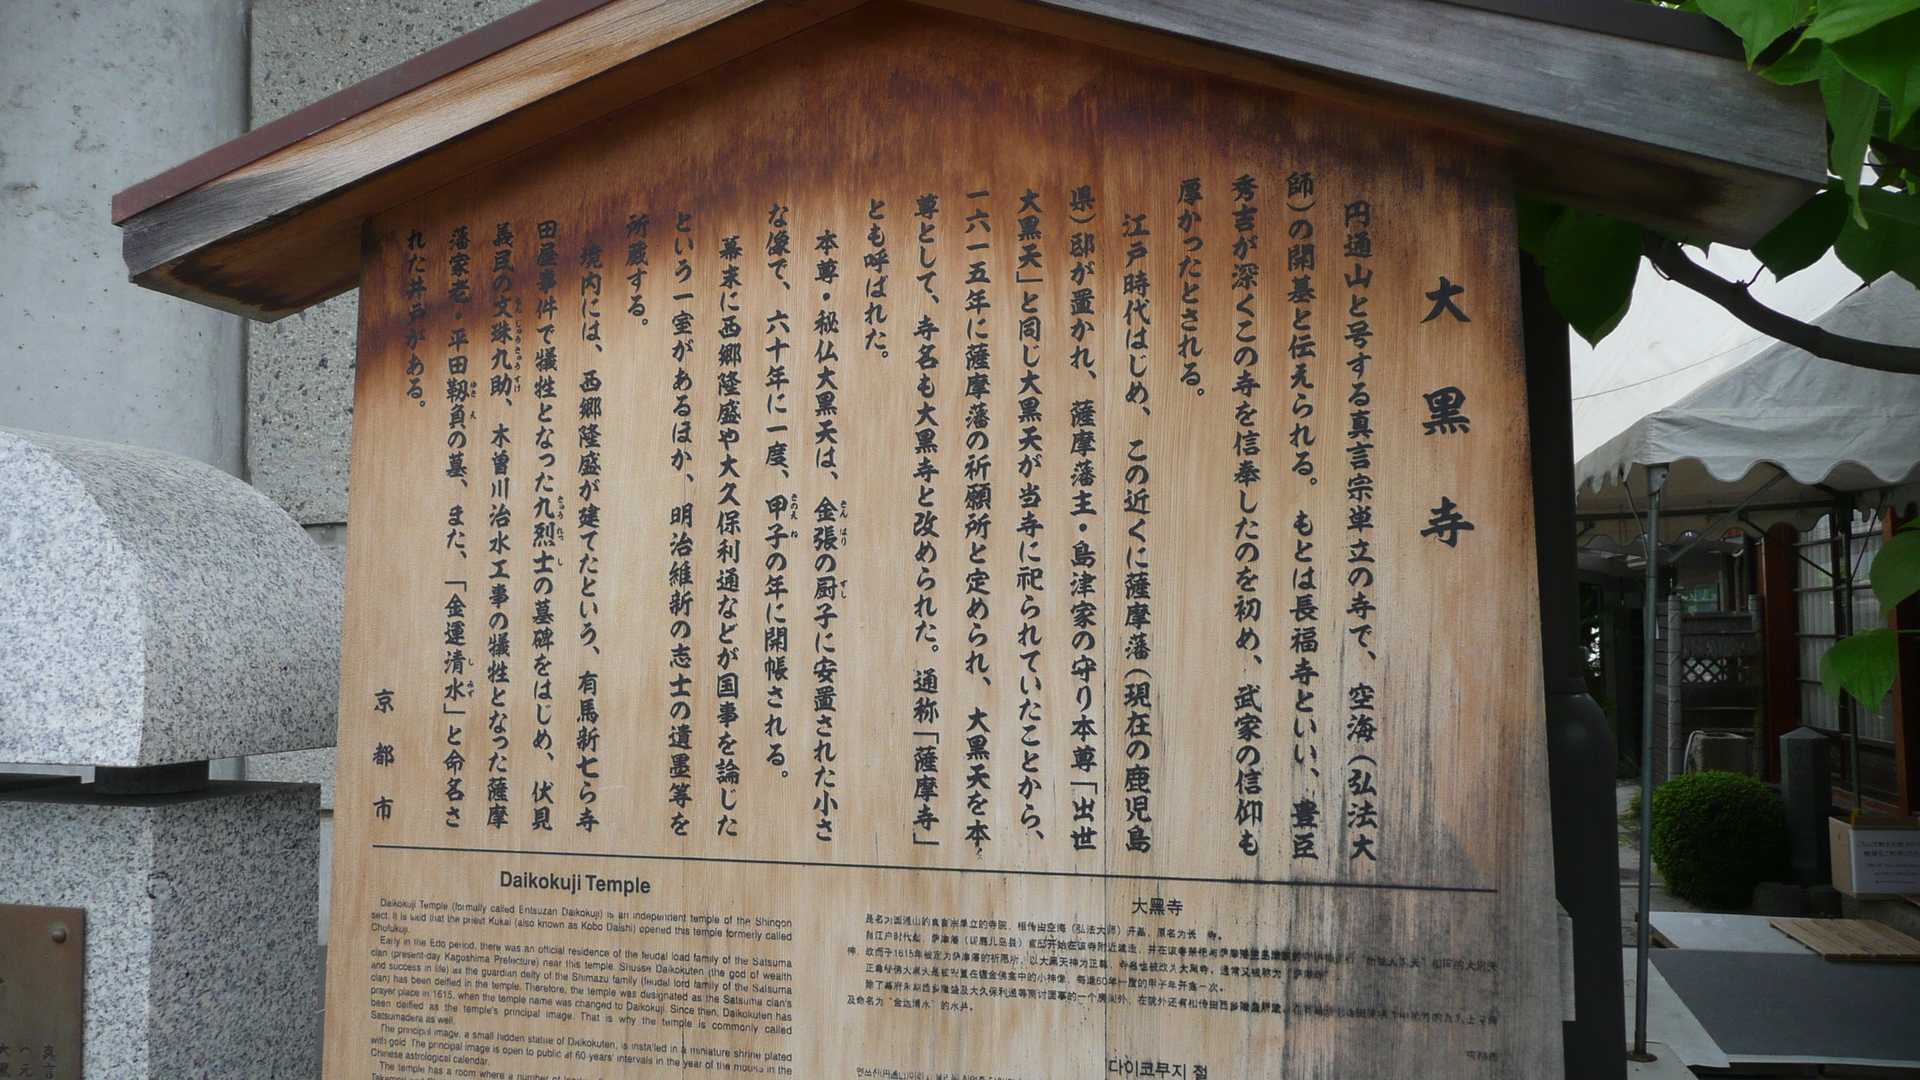 大黒寺
円通山と号する真言宗単立の寺で、空海(弘法大
師)の開基と伝えられる。もとは長福寺といい、豊臣
秀吉が深くこの寺を信奉したのを初め、武家の信仰も
厚かったとされる。
江戸時代はじめ、この近くに薩摩藩(現在の鹿児島
県)邸が置かれ、薩摩藩主・島津家の守り本尊「出世
大黒天」と同じ大黒天が当寺に祀られていたことから、
一六一五年に薩摩藩の祈願所と定められ、大黒天を本
尊として、寺名も大黒寺と改められた。通称「薩摩寺」
とも呼ばれた。
本尊・秘仏大黒天は、金張の厨子に安置された小さ
な像で、六十年に一度、甲子の年に開帳される。
幕末に西郷隆盛や大久保利通などが国事を論じた
という一室があるほか、明治維新の志士の遺墨等を
所蔵する。
境内には、西郷隆盛が建てたという、有馬新七ら寺
田屋事件で犠牲となった九烈士の墓碑をはじめ、伏見
義民の文珠九助、木曽川治水工事の犠牲となった薩摩
藩家老・平田靱負の墓、また、「金運清水」と命名さ
れた井戸がある。
京都市
Daikokuji Temple
Daikokuji Temple (formally called Entsuzan Daikokuji) is an independent temple of the Shingon
sect. It is said that the priest Kukai (also known as Kobo Daishi) opened this temple formerly called
Chofukuji.
Early in the Edo period, there was an official residence of the feudal load family of the Satsuma
clan (present-day Kagoshima Prefecture) near this temple. Shusse Daikokuten (the god of wealth
and success in life) as the guardian deity of the Shimazu family (feudal lord family of the Satsuma
clan) has been deified in the temple. Therefore, the temple was designated as the Satsuma clan's
prayer place in 1615, when the temple name was changed to Daikokuji. Since then, Daikokuten has
been deified as the temple's principal image. That is why the temple is commonly called
Satsumadera as well.
The principal image, a small hidden statue of Daikokuten, is installed in a miniature shrine plated
with gold. The principal image is open to public at 60 years' intervals in the year of the mouse in the
Chinese astrological calendar.
The temple has a room where a number of
大黑寺
正尊秘佛大黑天是被安置在镀金佛龛中的小神像，每逢60年一度的甲子年开龛一次。
及命名为“金运清水”的水井。
다이코쿠지 절